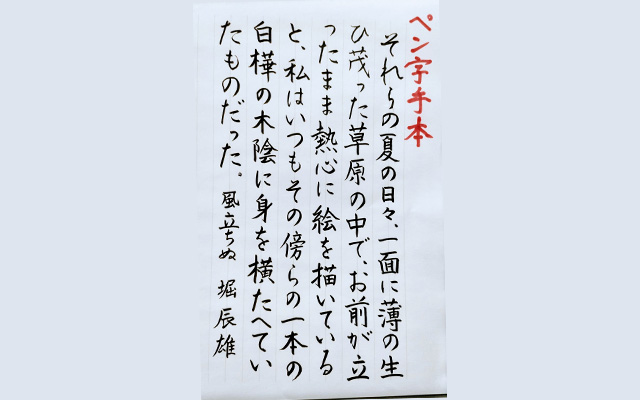 ペン字手本
それらの夏の日々、一面に薄の生
ひ茂った草原の中で、お前が立
ったまま熱心に絵を描いている
と、私はいつもその傍らの一本の
白樺の木陰に身を横たへてい
たものだった。
風立ちぬ 堀辰雄